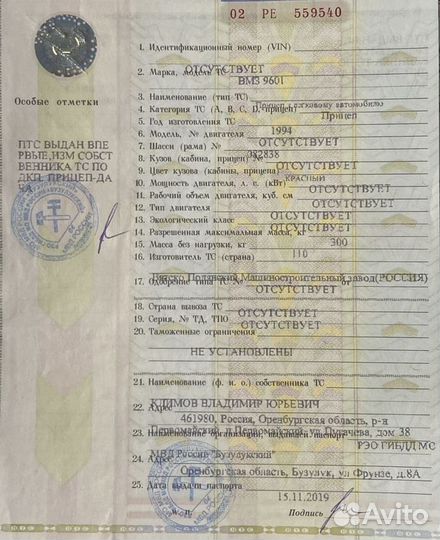 02 РЕ 559540
1. Идентификационный номер (VIN)
ОТСУТСТВУЕТ
2. Марка, модель ТС
ВМЗ 9601
Особые отметки
3. Наименование (тип ТС)
Прицеп к легковому автомобилю
4. Категория ТС (А, В, С, D, прицеп)
Прицеп
5. Год изготовления ТС
1994
ПТС ВЫДАН ВПЕ
РВЫЕ,ИЗМ СОБСТ
ВЕННИКА ТС ПО
ДКП, ПРИЦЕП-ДА
ЧА
6. Модель, № двигателя
ОТСУТСТВУЕТ
7. Шасси (рама) №
8. Кузов (кабина, прицеп) №
9. Цвет кузова (кабины, прицепа)
КРАСНЫЙ
10. Мощность двигателя, л. с. (кВт)
ОТСУТСТВУЕТ
11. Рабочий объем двигателя, куб. см
ОТСУТСТВУЕТ
12. Тип двигателя
ОТСУТСТВУЕТ
13. Экологический класс
ОТСУТСТВУЕТ
14. Разрешенная максимальная масса, кг
300
15. Масса без нагрузки, кг
110
16. Изготовитель ТС (страна)
Вятско Полянский Машиностроительный завод(РОССИЯ)
17. Одобрение типа ТС № от
ОТСУТСТВУЕТ
18. Страна вывоза ТС
ОТСУТСТВУЕТ
19. Серия, № ТД, ТПО
ОТСУТСТВУЕТ
20. Таможенные ограничения
НЕ УСТАНОВЛЕНЫ
21. Наименование (ф. и. о.) собственника ТС
КЛИМОВ ВЛАДИМИР ЮРЬЕВИЧ
22. Адрес
461980, Россия, Оренбургская область, р-н
Первомайский, п Первомайский, ул Пугачева, дом 38
23. Наименование организации, выдавшей паспорт
РЭО ГИБДД МО
МВД России "Бузулукский"
24. Адрес
Оренбургская область, Бузулук, ул Фрунзе, д.8А
25. Дата выдачи паспорта
15.11.2019
М. П.
Подпись
Avito